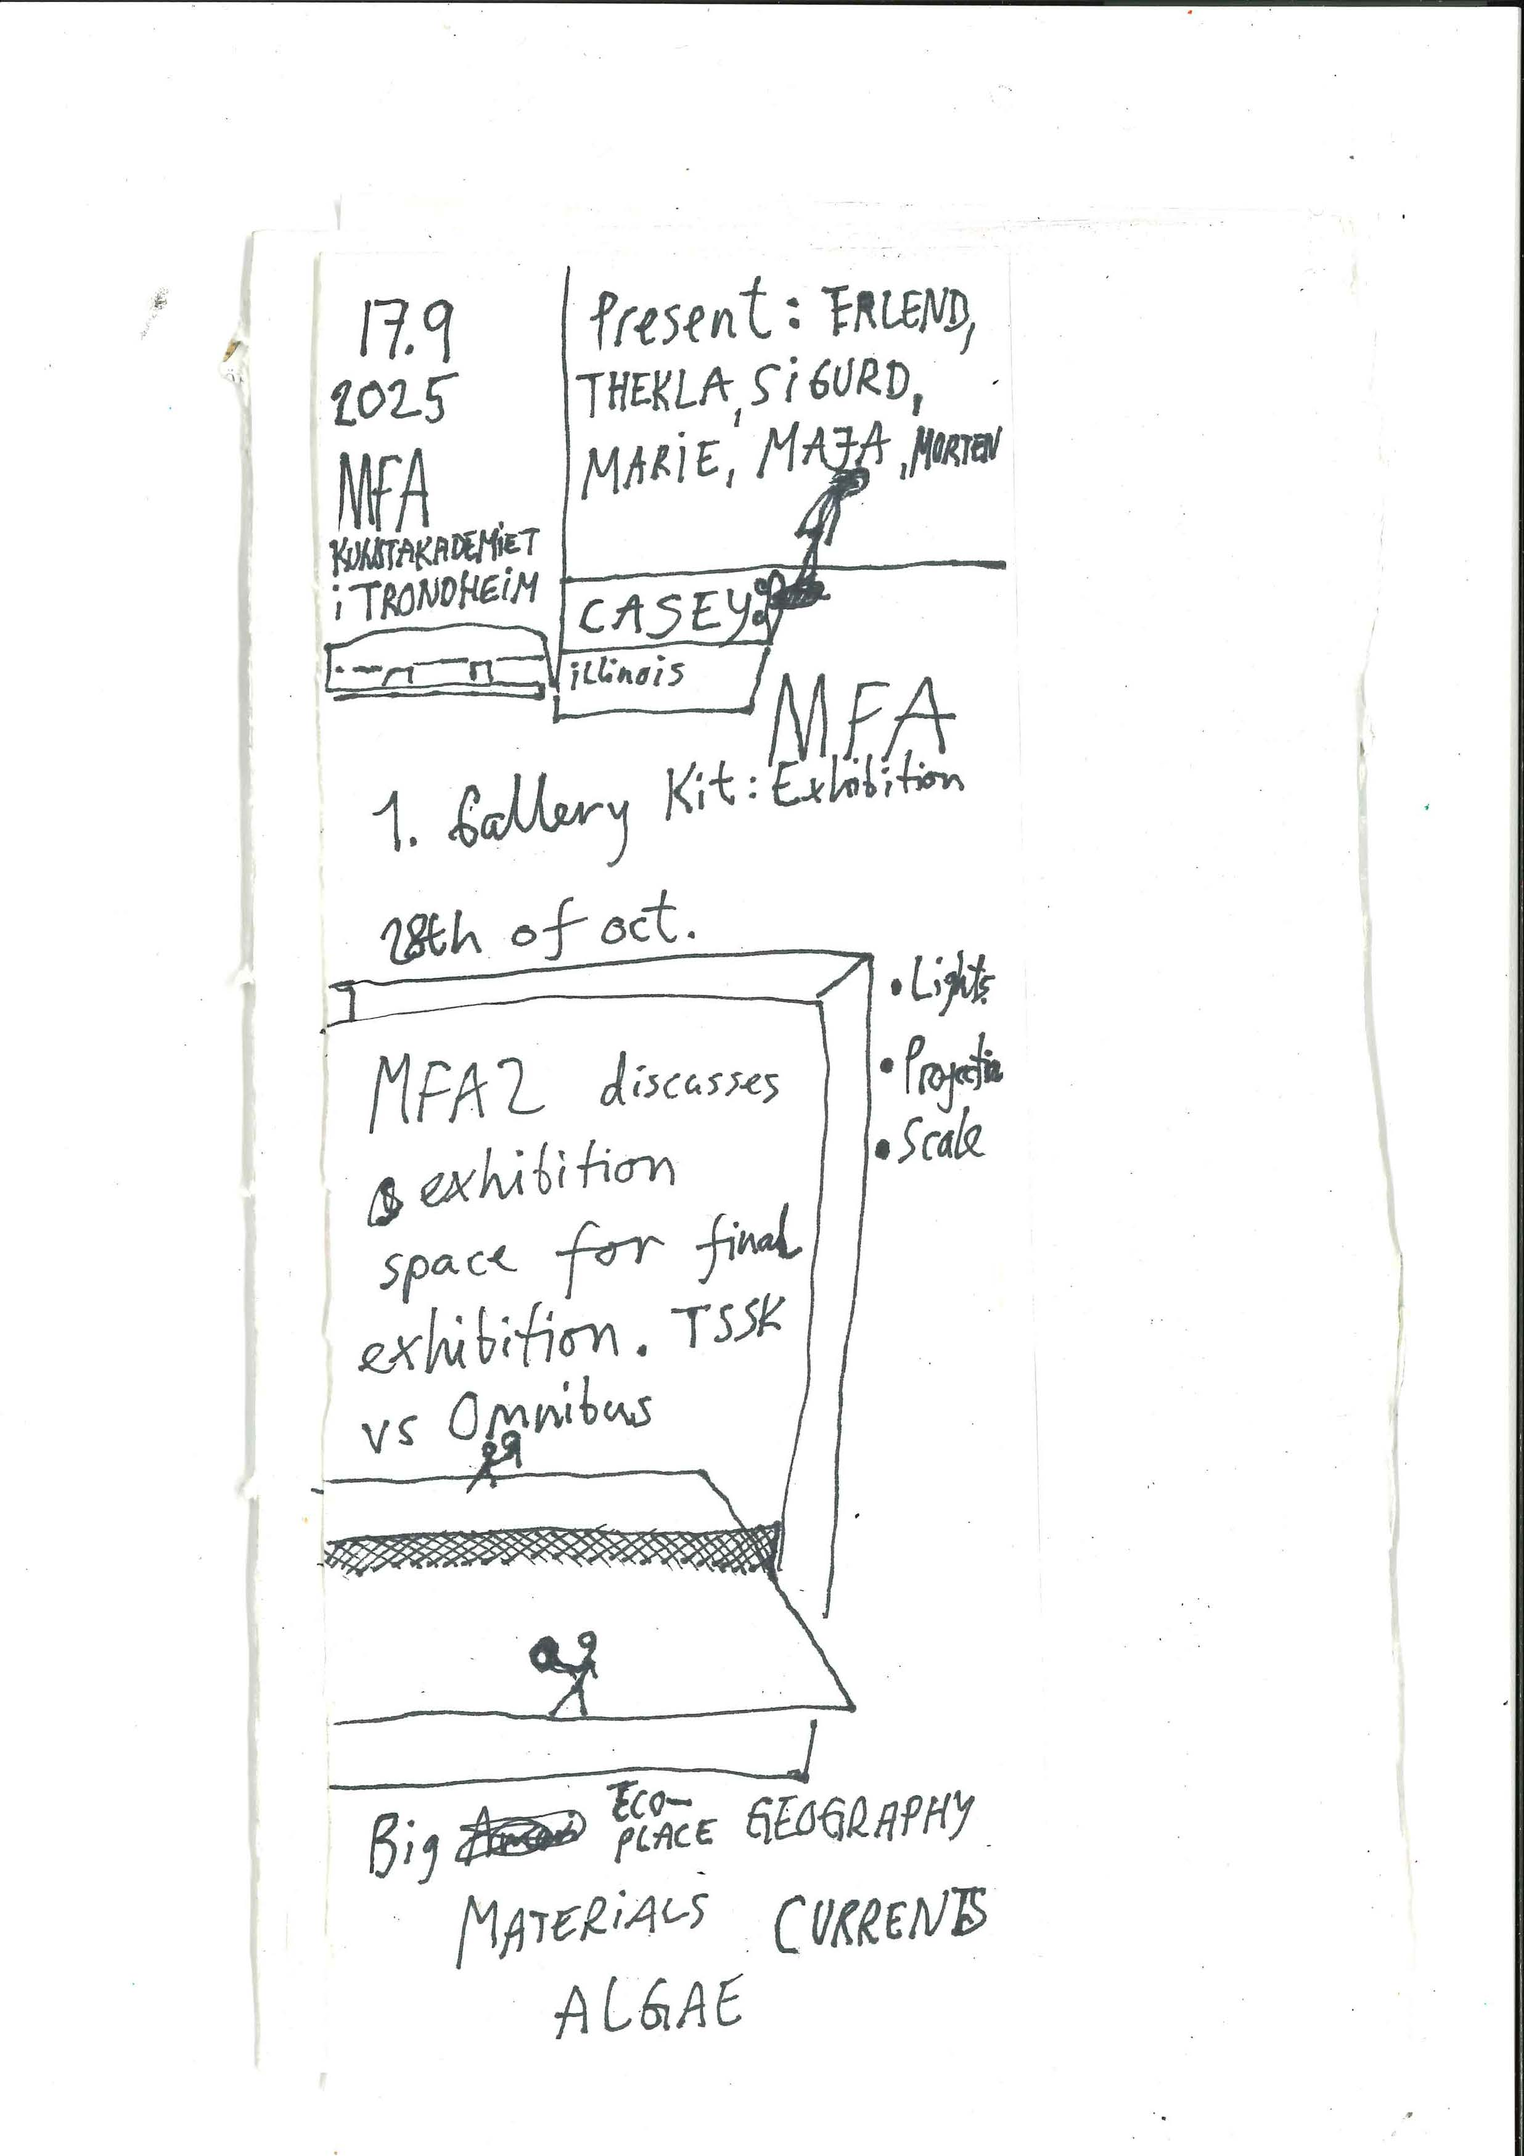 17.9
2025
MFA
KUNSTAKADEMIET
i TRONDHEIM
Present: ERLEND,
THEKLA, SiGURD,
MARiE, MAJA, MORTEN
CASEY
iLLinois
MFA
1. Gallery Kit: Exhibition
28th of oct.
• Lights
• Projectin
• Scale
MFA2 discusses
exhibition
space for final
exhibition. TSSK
vs Omnibus
Big ECO-
PLACE GEOGRAPHY
MATERiALS CURRENTS
ALGAE